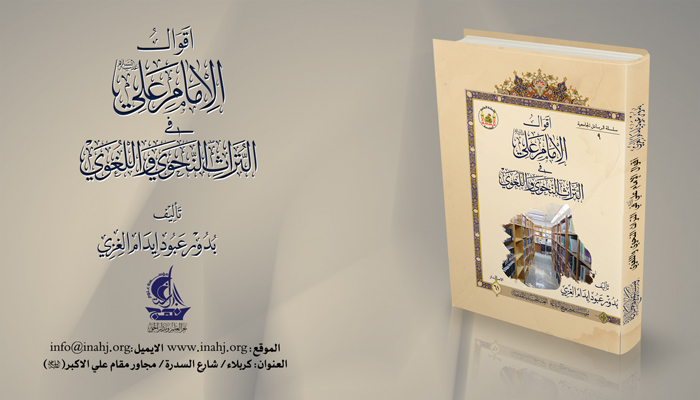 أقوال
الإمام علي
في
التراث النحوي واللغوي
تأليف
بدور عبود ايدام الغزي
الموقع: www.inahj.org الايميل: info@inahj.org
العنوان: كربلاء/ شارع السدرة/ مجاور مقام علي الاكبر
سلسلة الرسائل الجامعية
٩
أقوال
الإمام علي
في
التراث النحوي واللغوي
تأليف
بدور عبود ايدام الغزي